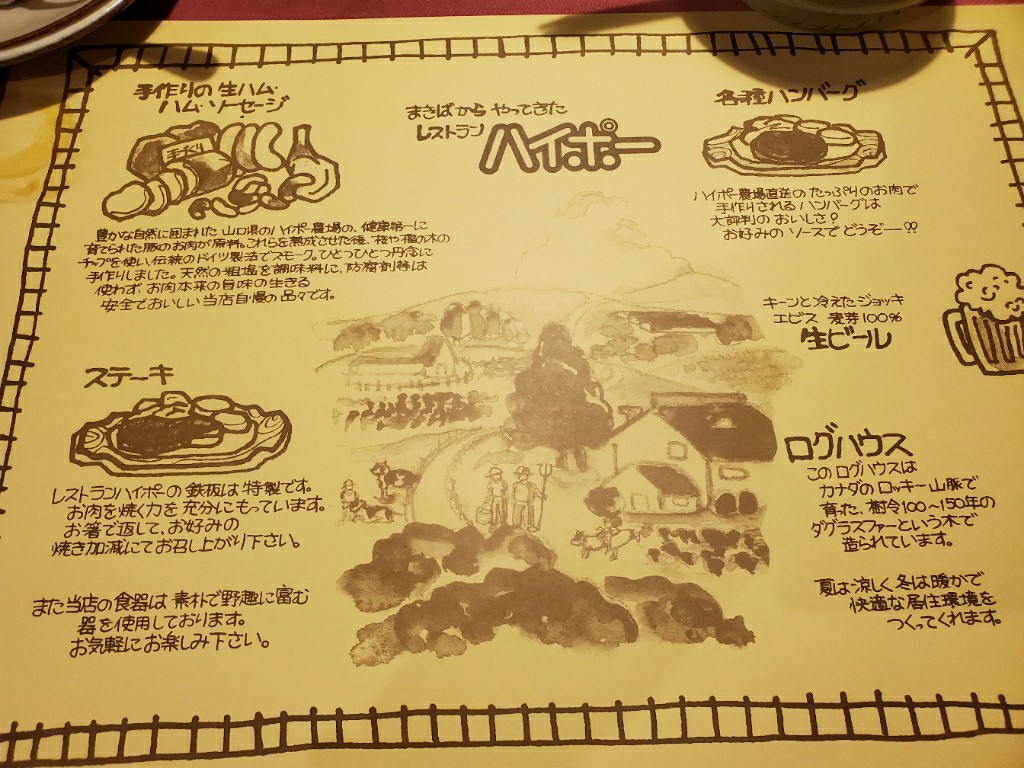 手作りの生ハム・
ハム・ソーセージ
手作り
豊かな自然に囲まれた山口県のハイポー農場の、健康第一に
育てられた豚のお肉が原料。これらを熟成させた後、桜や樫の木の
チップを使い、伝統のドイツ製法でスモーク。ひとつひとつ丹念に
手作りしました。天然の粗塩を調味料に、防腐剤等は
使わず、お肉本来の旨味の生きる
安全でおいしい当店自慢の品々です。
まきばから やってきた
レストラン
ハイポー
各種ハンバーグ
ハイポー農場直送のたっぷりのお肉で
手作りされるハンバーグは
大評判のおいしさ!
お好みのソースでどうぞー!!
キーンと冷えたジョッキ
エビス 麦芽100%
生ビール
ステーキ
レストランハイポーの鉄板は特製です。
お肉を焼く力を充分にもっています。
お箸で返して、お好みの
焼き加減にてお召し上がり下さい。
また当店の食器は素朴で野趣に富む
器を使用しております。
お気軽にお楽しみ下さい。
ログハウス
このログハウスは
カナダのロッキー山脈で
育った、樹令100~150年の
ダグラスファーという木で
造られています。
夏は涼しく冬は暖かで
快適な居住環境を
つくってくれます。